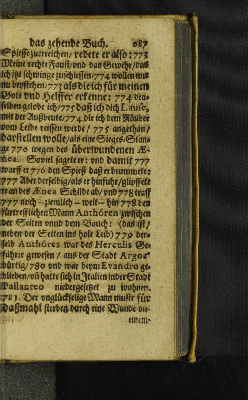 das zehende Buch. 687
Spiesse zuetreichen/ redete er also: 773
Meine rechte Faust/ vnd das Gewehr/ das
ich itzt schwinge zuschiessen/ 774 wollen mir
nu beystehen/ 772 als die ich für meinen
Gott vnd Helffer erkenne: 774 den-
selben gelobe ich/ 775 daß ich dich Lause,
mit der Außbeute/ 774 die ich dem Räuber
vom Leibe reissen werde/ 775 angethan/
darstellen wolle/ als eine Sieges-Stan-
ge 770 wegen des überwundenen Æ-
neæ. Soviel sagete er: vnd damit 777
warff er 776 den Spieß daß er brummete:
777 Aber derselbig/ als er hinfuhr/ glipssete
er an des Æneæ Schilde ab/ vnd 778 traff
777 noch ziemlich weit hin 778 den
fürtrefflichen Mann Anthóren zwischen
der Seiten vnnd dem Bauch: (das ist/
neben der Seiten ins hole Leib) 779 der-
selb Anthóres war des Herculis Ge-
fährte gewesen/ aus der Stadt Argos
bürtig/ 780 vnd war beym Evandro ge-
blieben/ vñ hatte sich in Italien in der Stadt
Pallanteo niedergesetzt zu wohnen.
781. Der vnglückselige Mann muste für
Daßmahl sterben durch eine Wunde die
einem